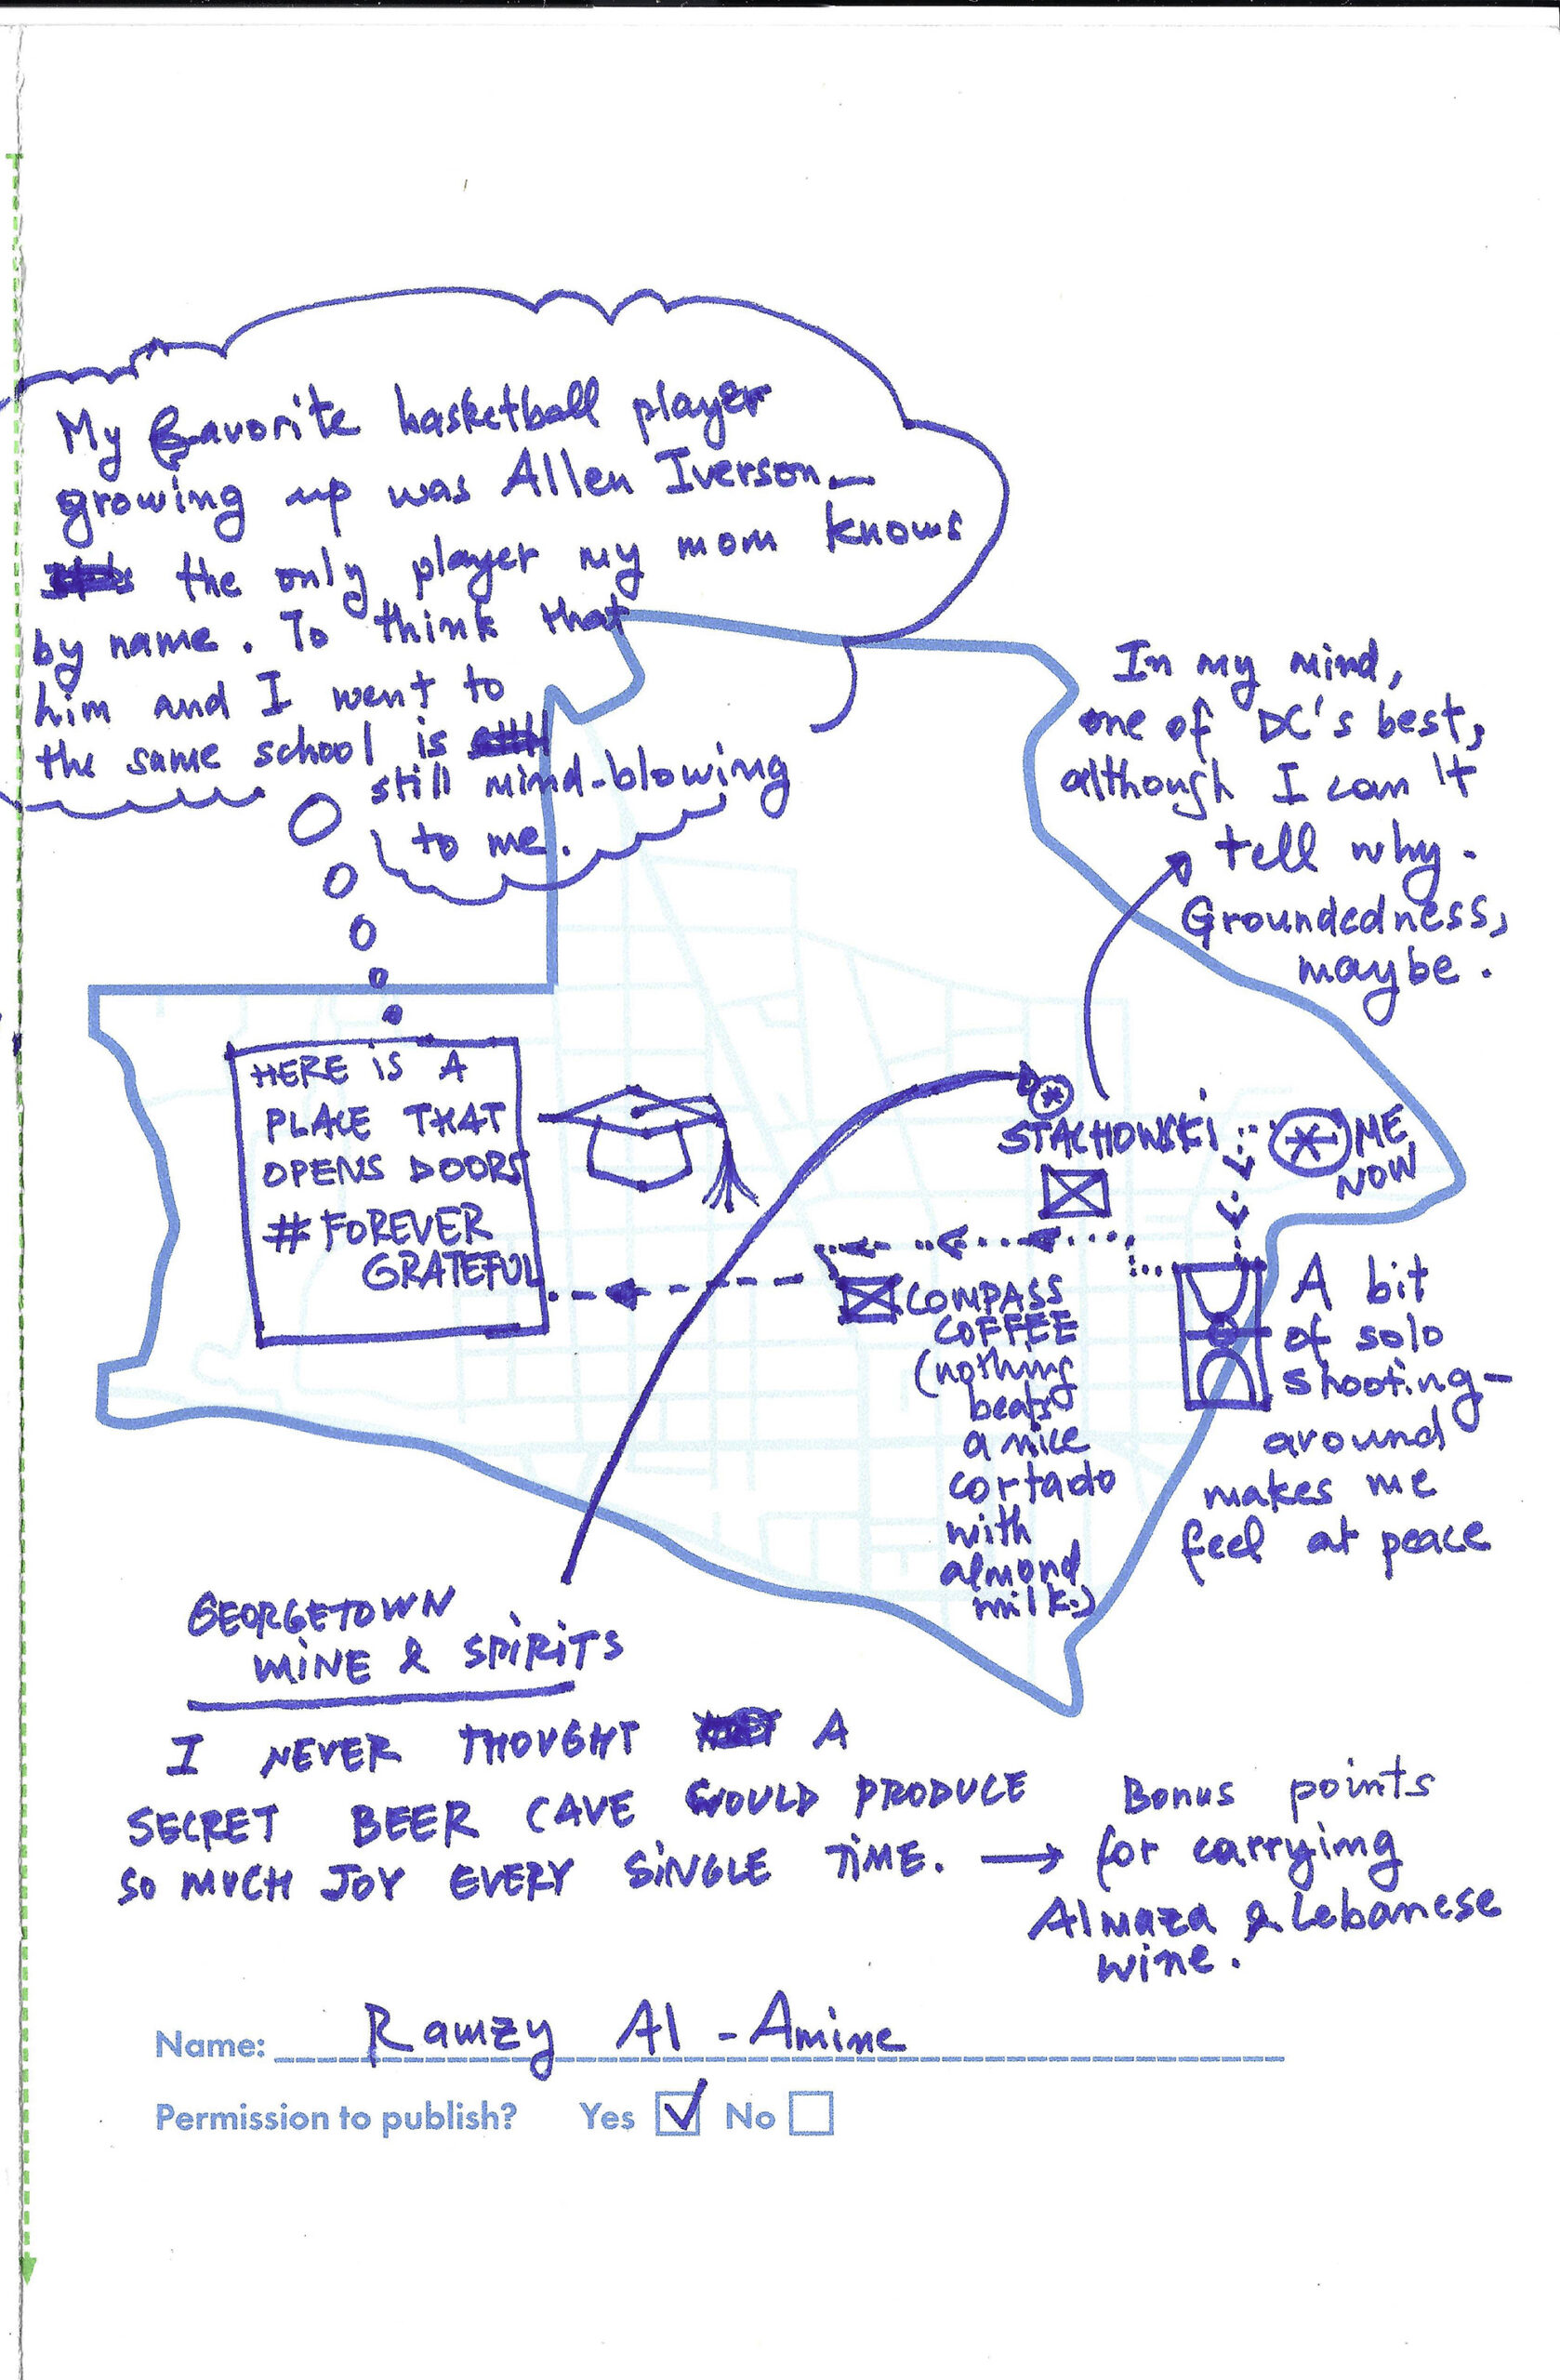 My favorite basketball player
growing up was Allen Iverson —
the only player my mom knows
by name. To think that
him and I went to
the same school is
still mind-blowing
to me.
In my mind,
one of DC's best,
although I can't
tell why.
Groundedness,
maybe.
HERE iS A
PLACE THAT
OPENS DOORS
# FOREVER
GRATEFUL
STACHOWSKi
ME
NOW
COMPASS
COFFEE
(nothing
beats
a nice
cortado
with
almond
milk:)
A bit
of solo
shooting-
around
makes me
feel at peace
GEORGETOWN
WiNE & SPiRiTS
I NEVER THOUGHT A
SECRET BEER CAVE WOULD PRODUCE
SO MUCH JOY EVERY SiNGLE TiME. →
Bonus points
for carrying
Almaza & Lebanese
wine.
Name: Ramzy Al-Amine
Permission to publish? Yes No